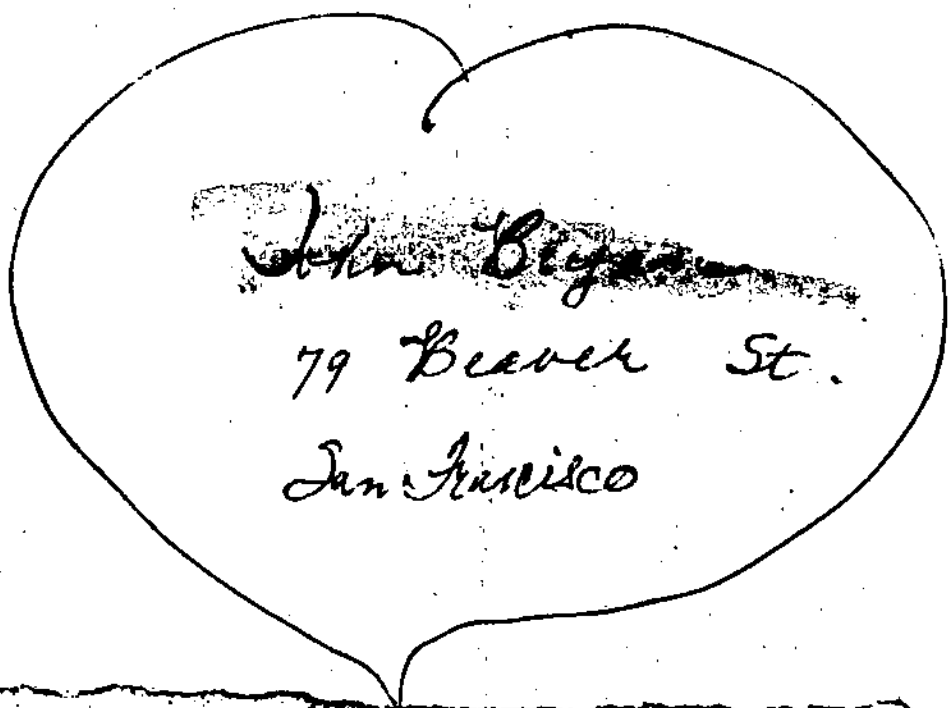 John
79 Beaver St.
San Francisco